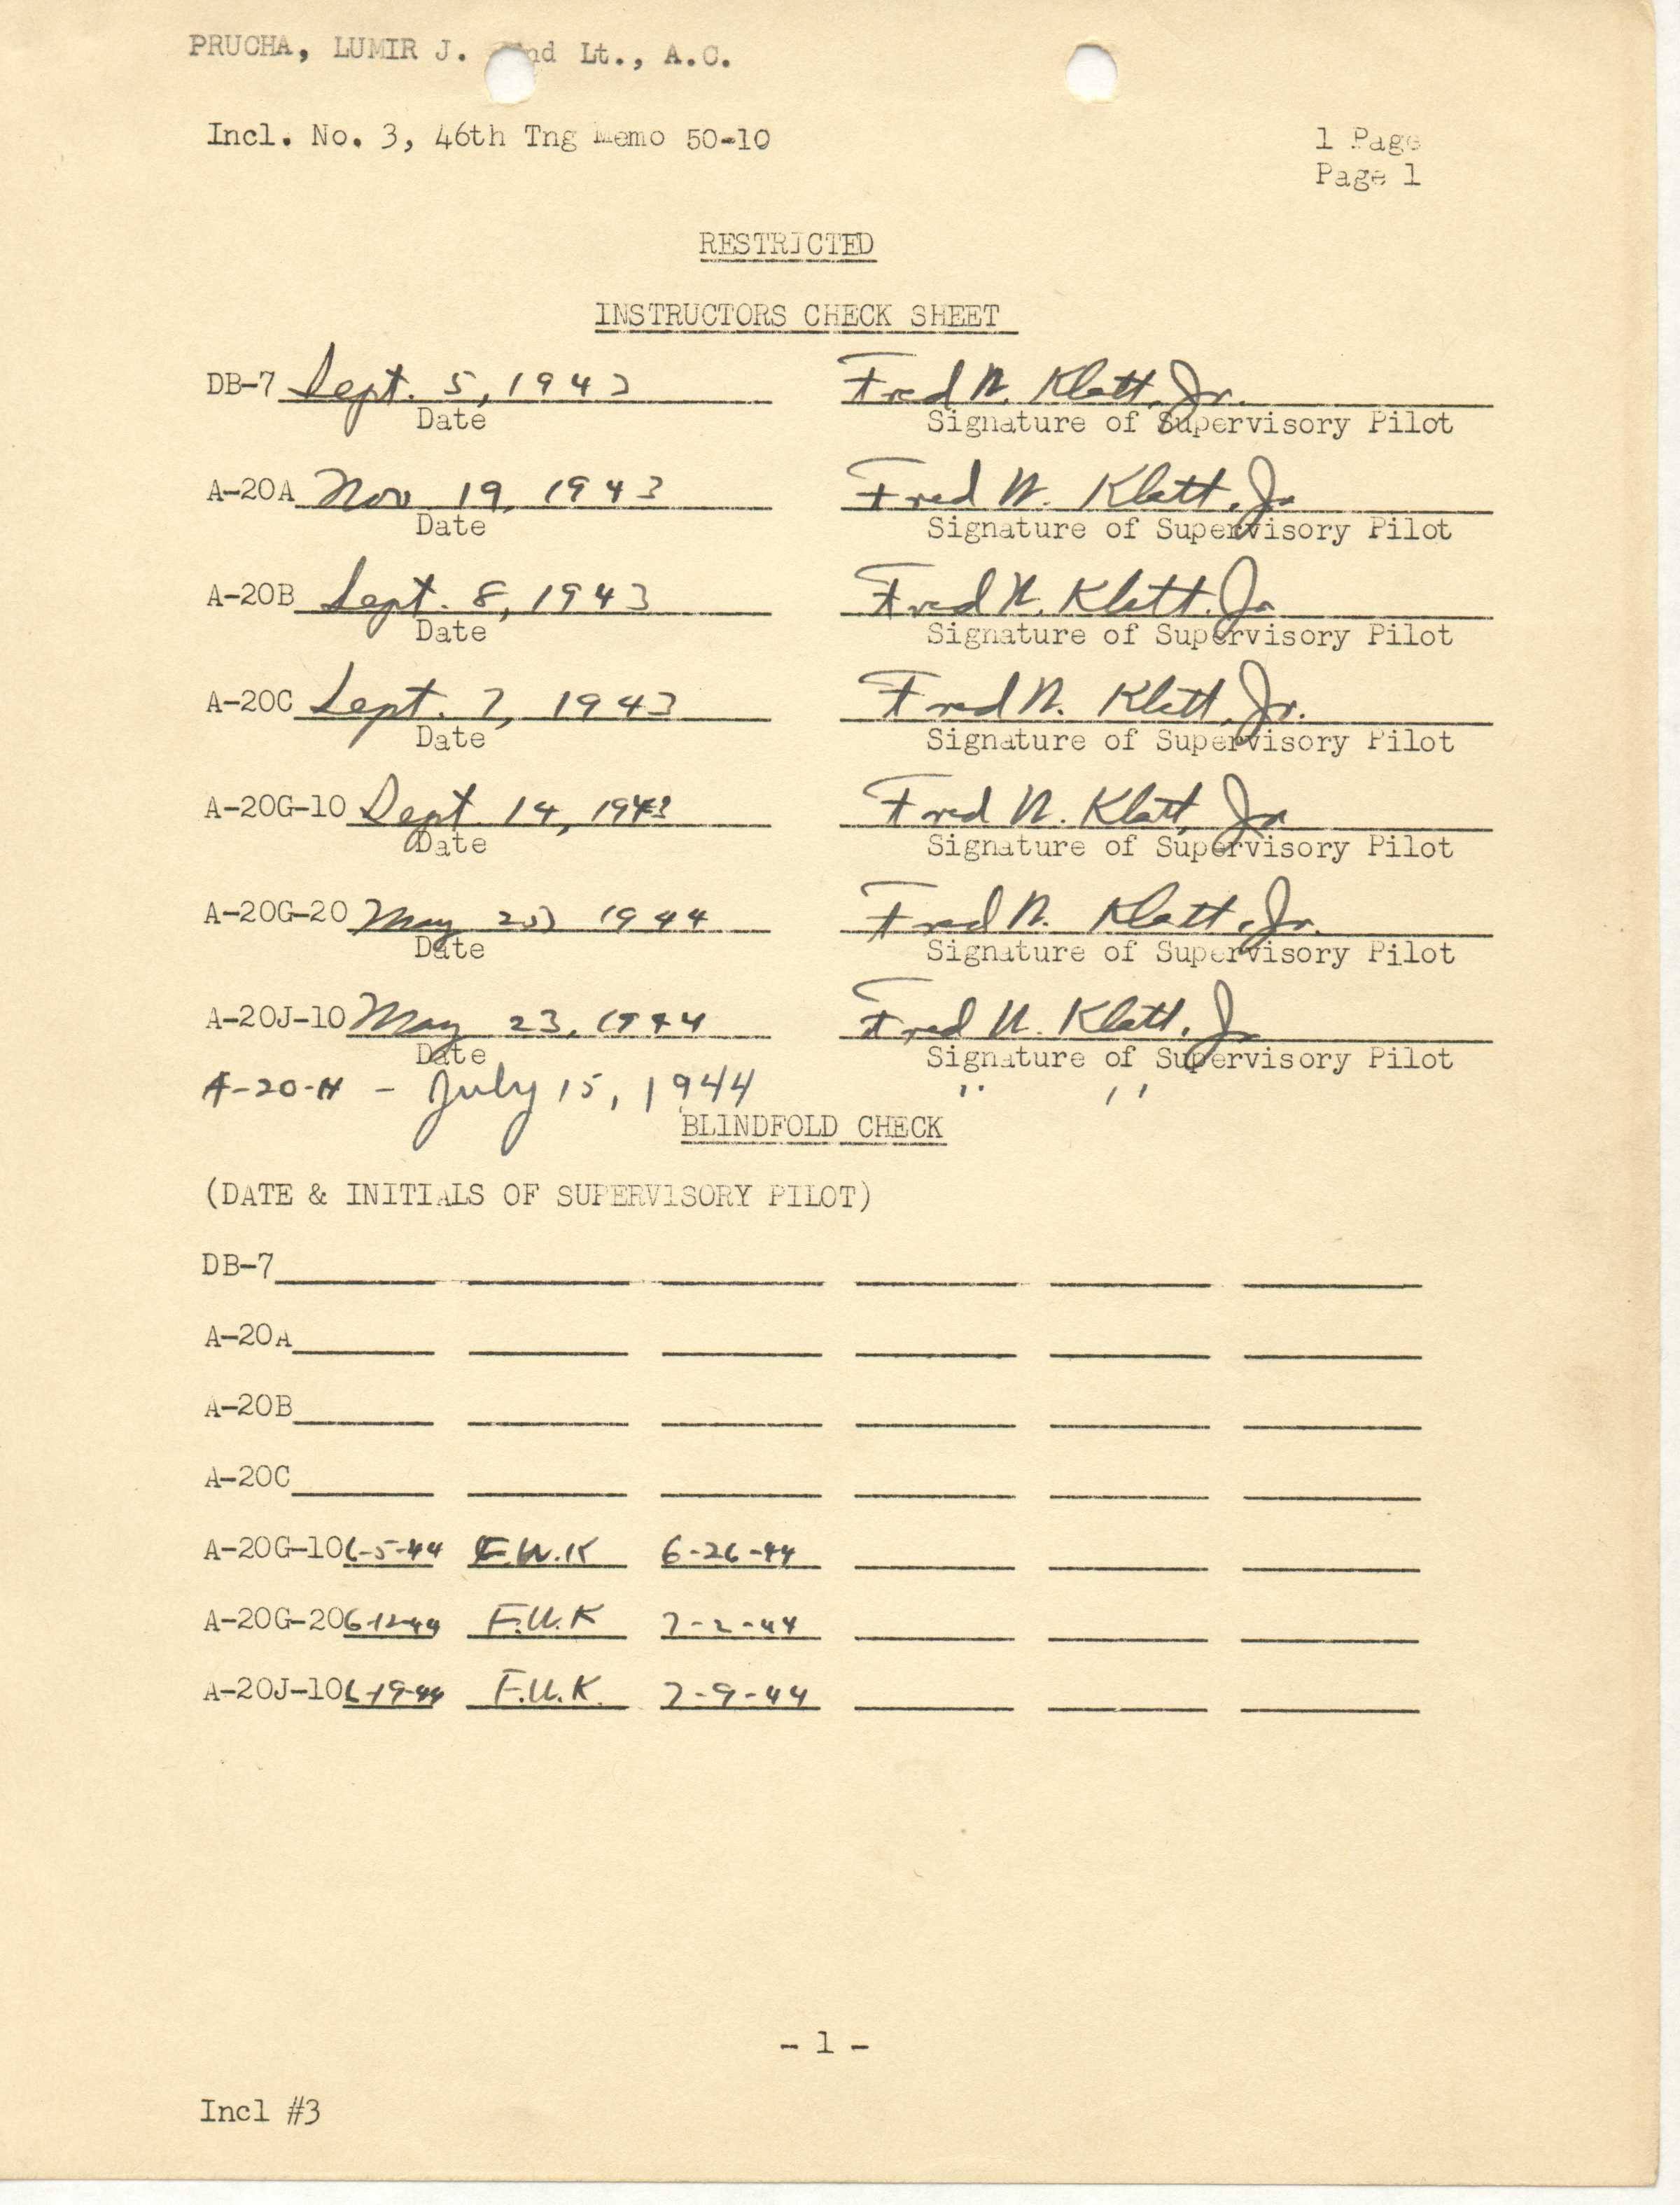 PRUCHA, LUMIR J. nd Lt., A.C.
Incl. No. 3, 46th Tng Memo 50-10
1 Page
Page 1
RESTRICTED
INSTRUCTORS CHECK SHEET
DB-7 Sept. 5, 1943 Fred W. Klatt, Jr.
Date Signature of Supervisory Pilot
A-20A Nov 19, 1943 Fred W. Klatt, Jr
Date Signature of Supervisory Pilot
A-20B Sept. 8, 1943 Fred W. Klatt, Jr
Date Signature of Supervisory Pilot
A-20C Sept. 7, 1943 Fred W. Klatt, Jr.
Date Signature of Supervisory Pilot
A-20G-10 Sept 14, 1943 Fred W. Klatt, Jr
Date Signature of Supervisory Pilot
A-20G-20 May 1944 Fred W. Klatt, Jr.
Date Signature of Supervisory Pilot
A-20J-10 May 23, 1944 Fred W. Klatt, Jr
Date Signature of Supervisory Pilot
A-20-H - July 15, 1944 " "
BLINDFOLD CHECK
(DATE & INITIALS OF SUPERVISORY PILOT)
DB-7
A-20A
A-20B
A-20C
A-20G-10 6-5-44 F.W.K 6-26-44
A-20G-20 6-12-44 F.W.K 7-2-44
A-20J-10 6-19-44 F.W.K. 7-9-44
- 1 -
Incl #3